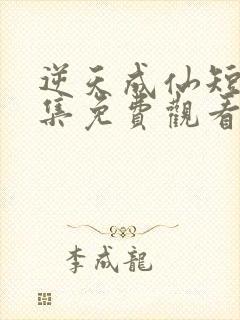 逆天成仙短
集免費觀看
李成龍